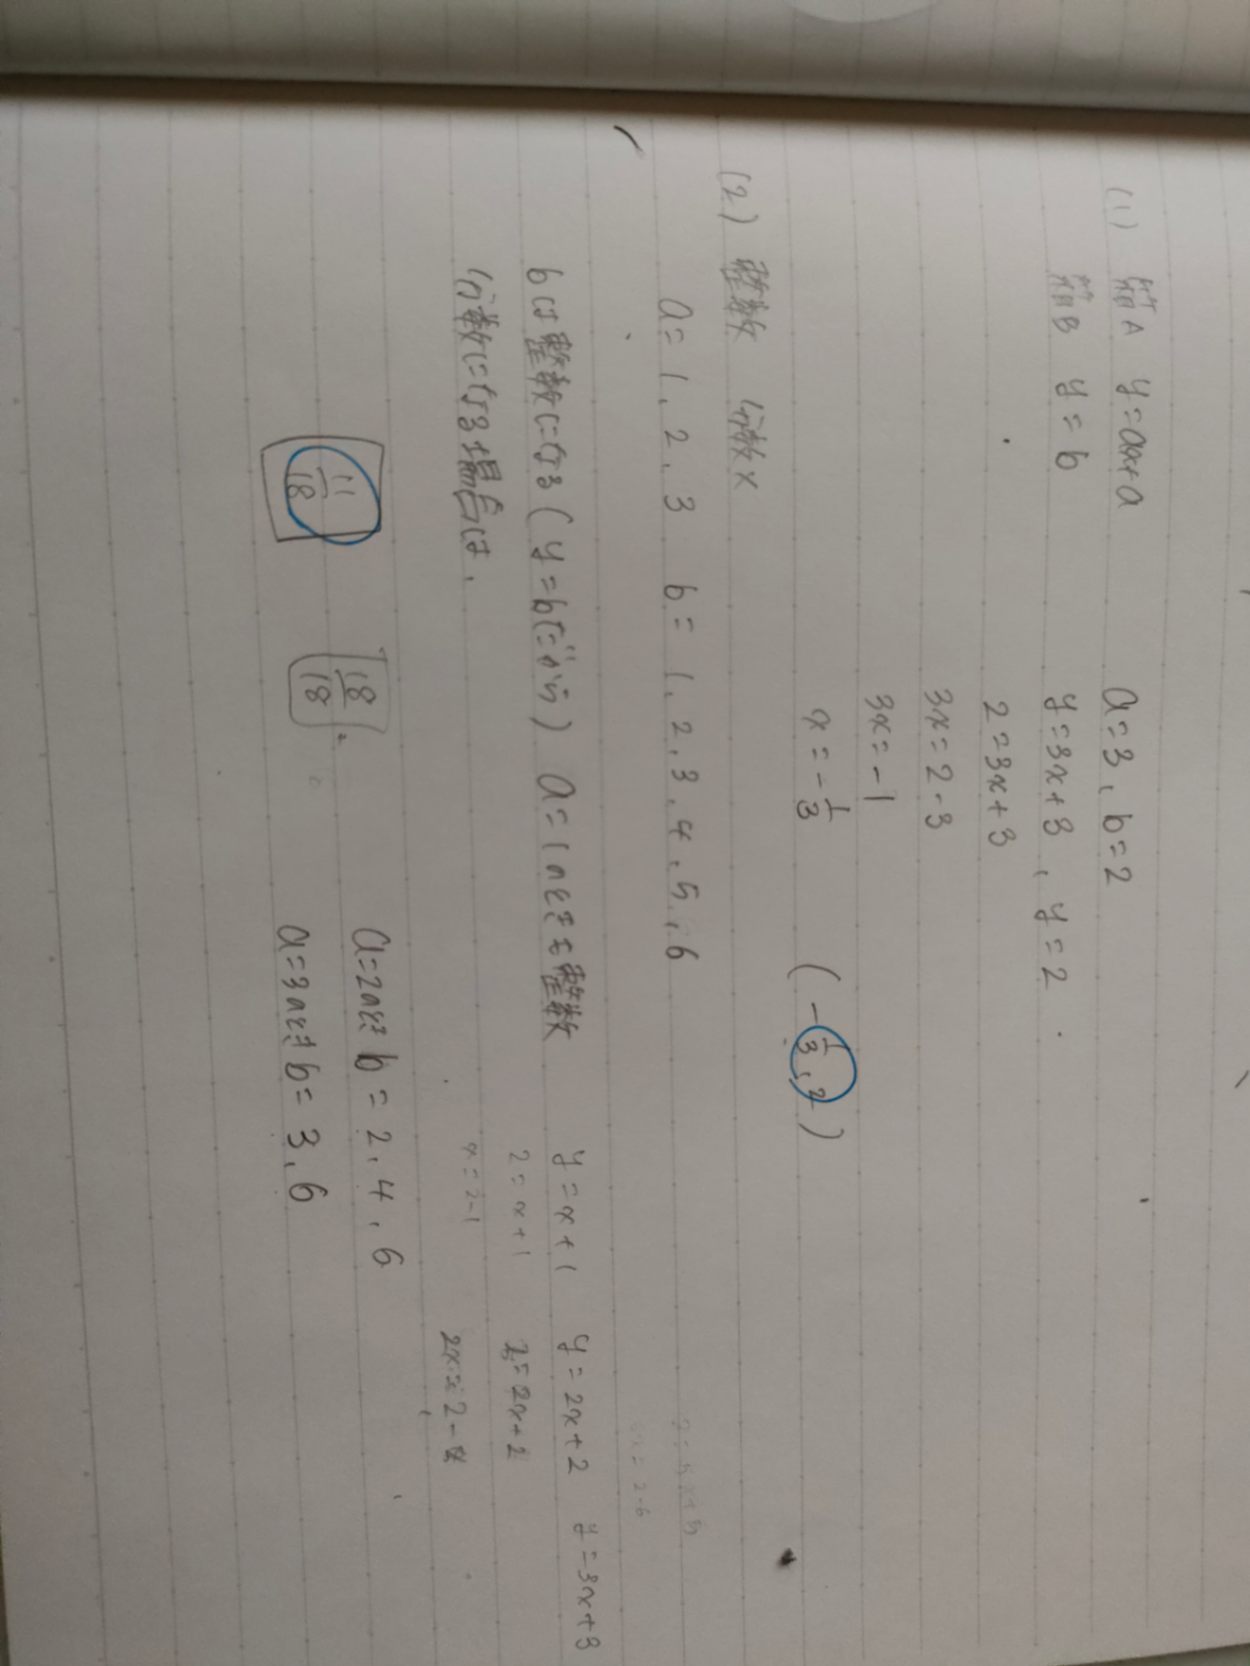 (1) 線A y=ax+a a=3, b=2
線B y=b y=3x+3, y=2
2=3x+3
3x=2-3
3x=-1
x=-1/3 (-1/3, 2)
(2) 整数 分数×
a=1, 2, 3 b=1, 2, 3, 4, 5, 6
bは整数になる(y=bだから) a=1のときも整数
分数になる場合は、
a=2のとき b=2, 4, 6
a=3のとき b=3, 6
11/18
18/18
y=x+1 y=2x+2 y=3x+3
2=x+1 2=2x+2
x=2-1 2x=2-2